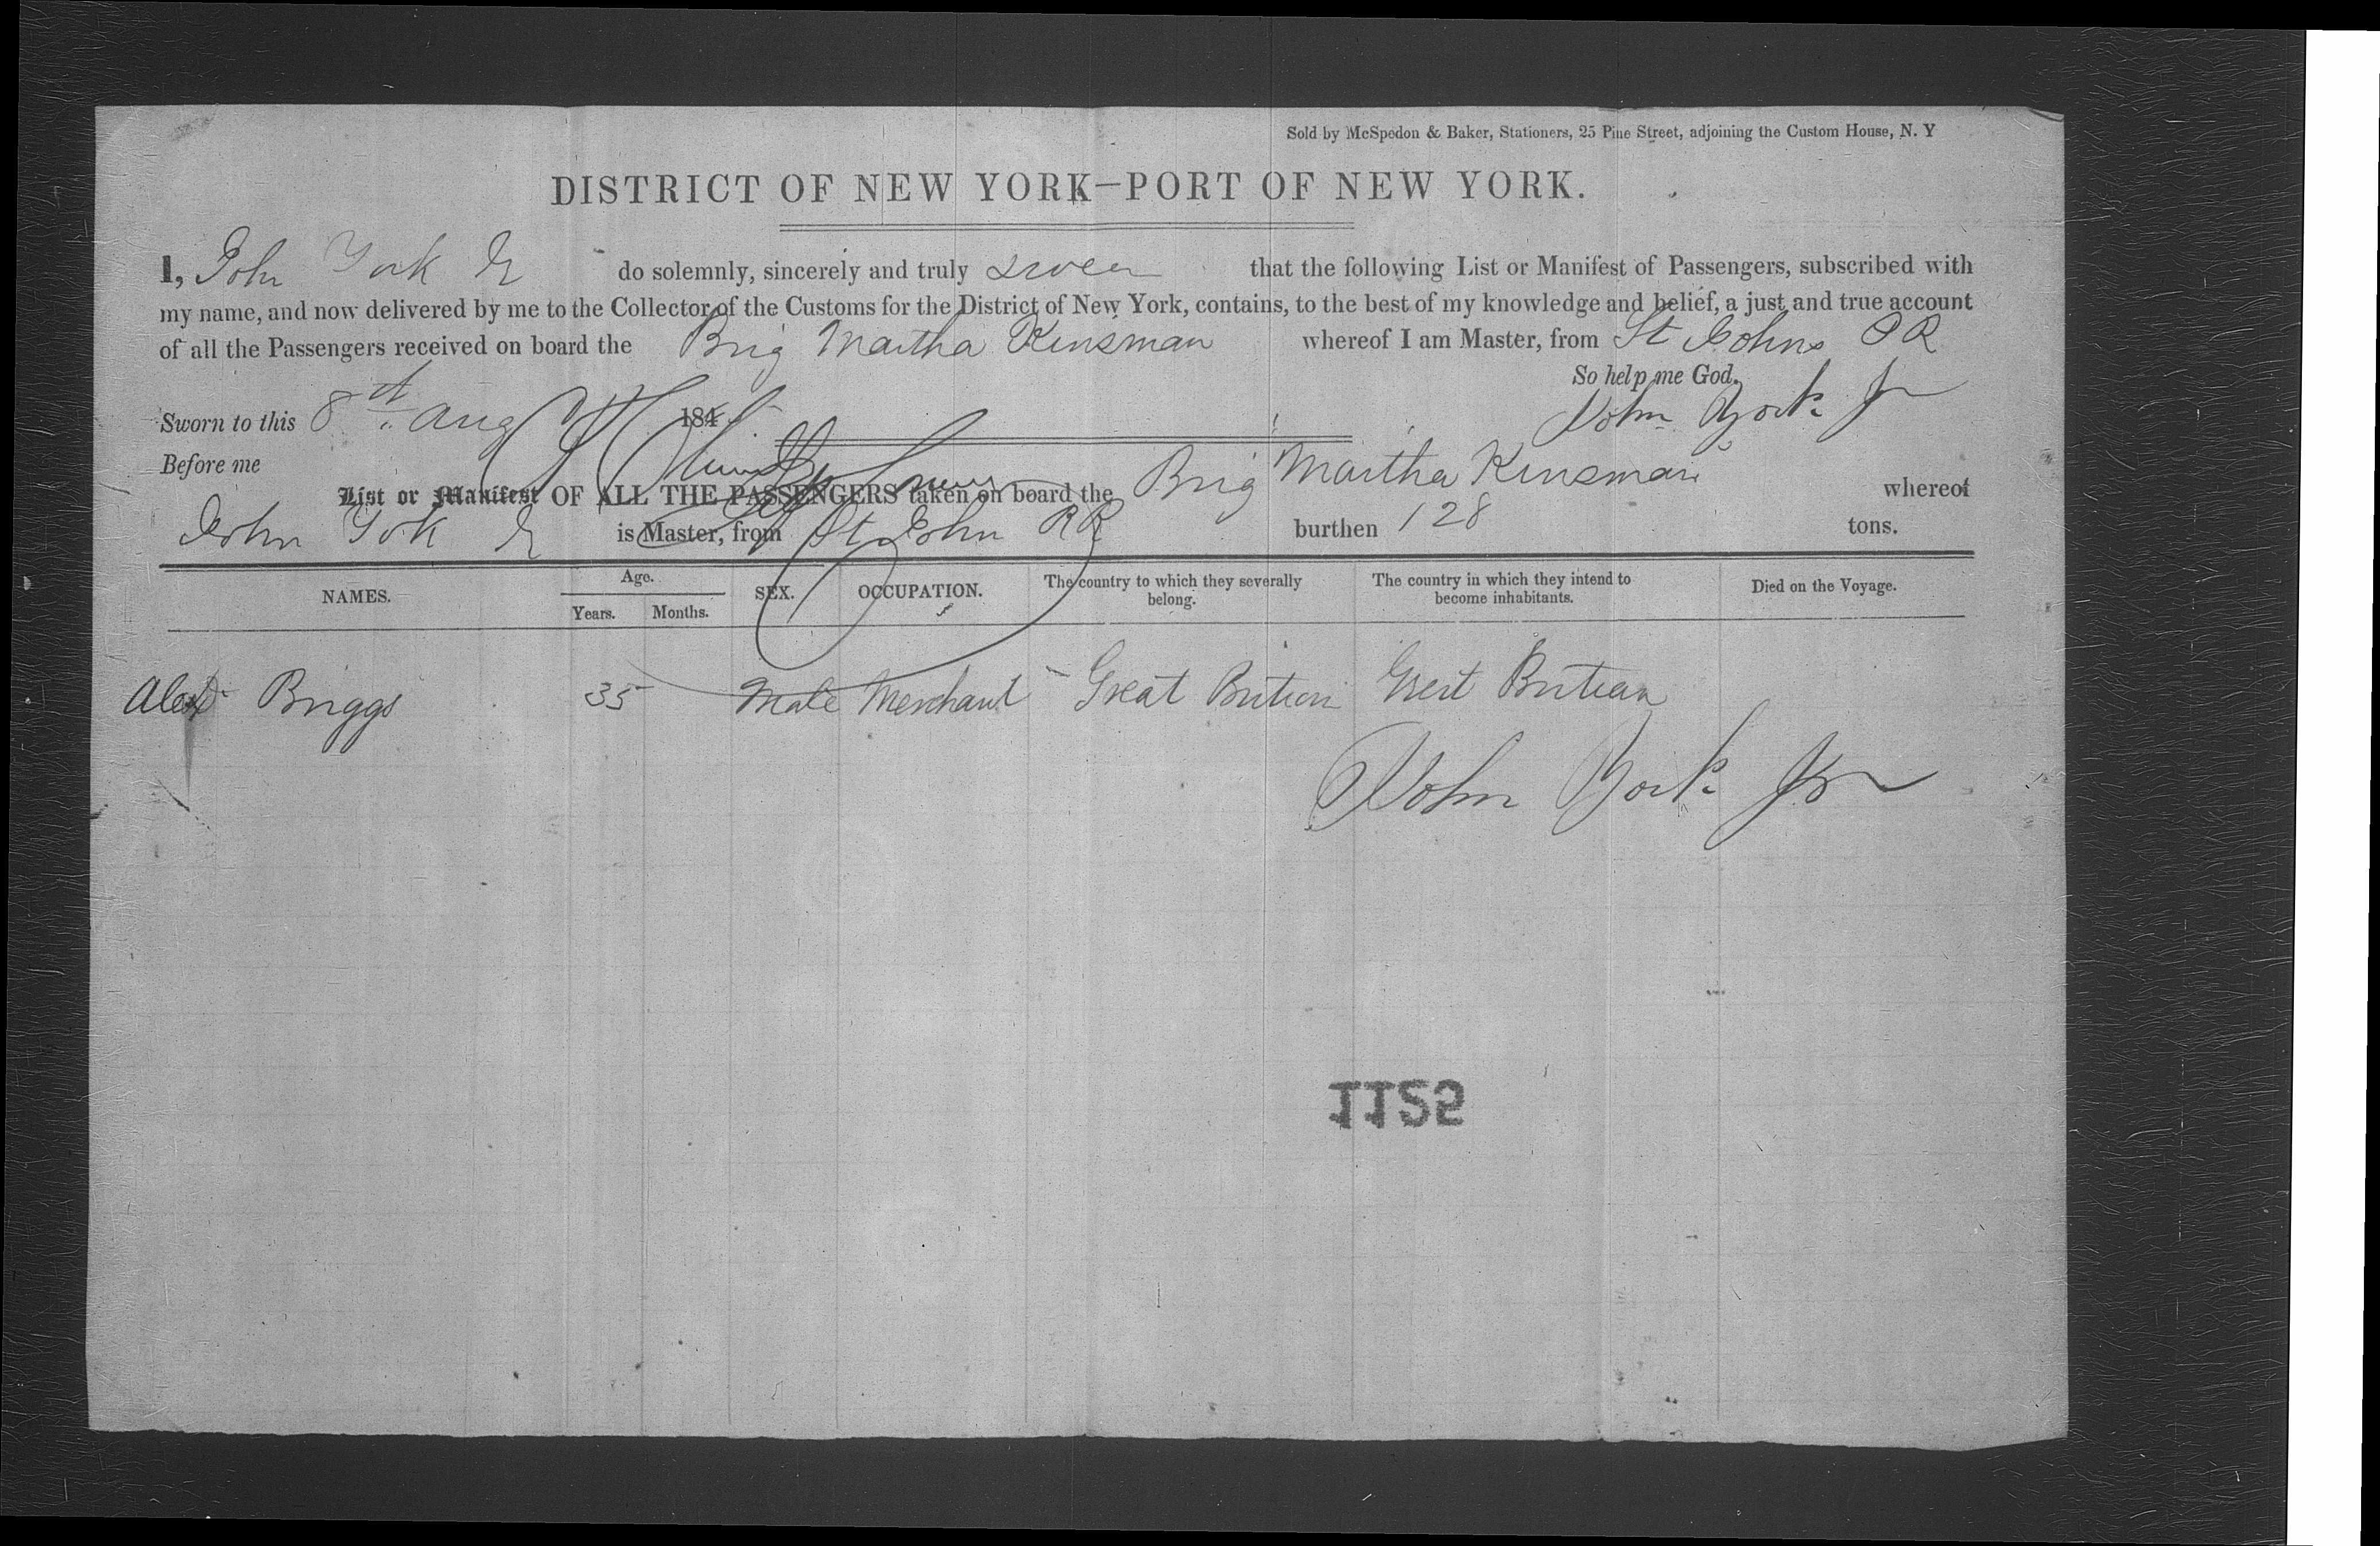 Sold by McSpedon & Baker, Stationers, 25 Pine Street, adjoining the Custom House, N. Y
DISTRICT OF NEW YORK—PORT OF NEW YORK.
I, John York Jr do solemnly, sincerely and truly swear that the following List or Manifest of Passengers, subscribed with
my name, and now delivered by me to the Collector of the Customs for the District of New York, contains, to the best of my knowledge and belief, a just and true account
of all the Passengers received on board the Brig Martha Kinsman whereof I am Master, from St Johns P R
So help me God.
Sworn to this 8th Aug 184
John York Jr
Before me
List or Manifest OF ALL THE PASSENGERS taken on board the Brig Martha Kinsman whereof
John York Jr is Master, from St John P R burthen 128 tons.
NAMES. Age. Years. Months. SEX. OCCUPATION. The country to which they severally belong. The country in which they intend to become inhabitants. Died on the Voyage.
Alexr Briggs 35 Male Merchant Great Britian Great Britian
John York Jr
1125